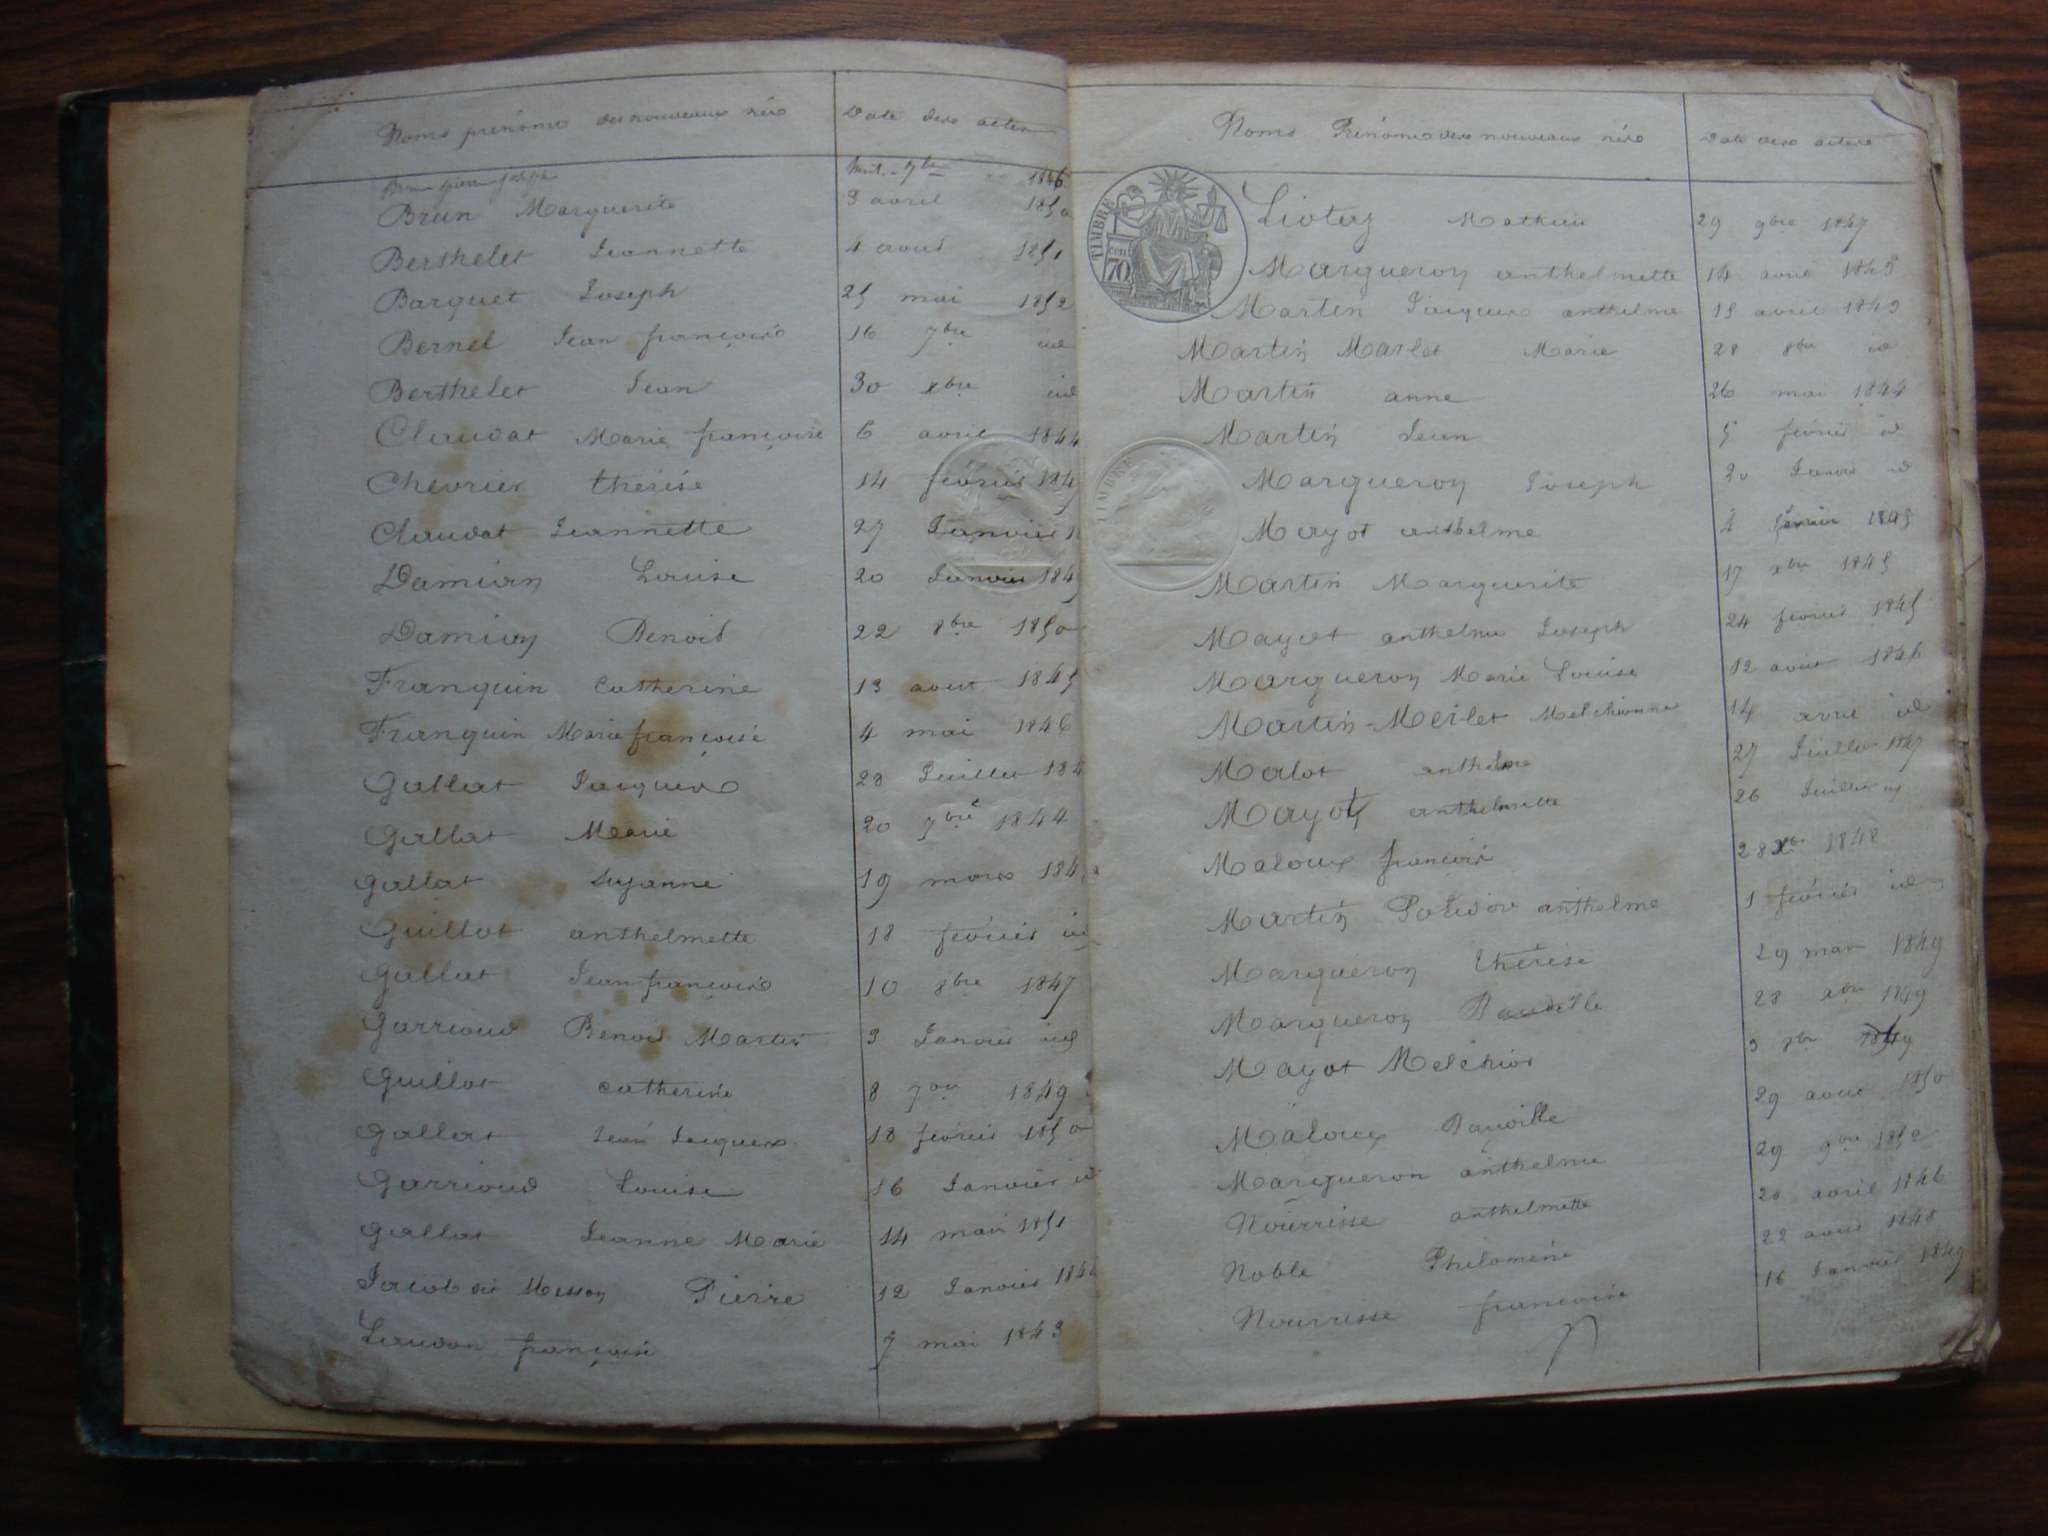 Noms prénoms des nouveaux nés Date des actes
Brun pierre joseph 7bre 1846
Brun Marguerite 3 avril 1850
Berthelet Jeannette 4 aout 1851
Barquet Joseph 25 mai 1852
Bernel Jean françois 16 7bre id
Berthelet Jean 30 xbre id
Claudat Marie françoise 6 avril 1844
Chevrier thérèse 14 février 184
Claudat Jeannette 27 Janvier 1
Damian Louise 20 Janvier 1845
Damian Benoit 22 8bre 1850
Franquin Catherine 13 aout 1845
Franquin Marie françoise 4 mai 1846
Gallat Jacques 28 Juillet 184
Gallat Marie 20 7bre 1844
Gallat Suzanne 19 mars 184
Guillot anthelmette 18 février id
Gallat Jean françois 10 8bre 1847
Garrioud Benoit Martin 3 Janvier id
Guillot catherine 8 7bre 1849
Gallat Jean Jacques 18 février 1850
Garrioud Louise 16 Janvier id
Gallat Jeanne Marie 14 mai 1851
Jacob dit Messon Pierre 12 Janvier 1844
Laudon françoise 7 mai 1843
Noms Prénoms des nouveaux nés Date des actes
TIMBRE
70 cent
Liotey Mathieu 29 9bre 1847
Margueron anthelmette 14 avril 1843
Martin Jacques anthelme 15 avril 1843
Martin Marlet Marie 28 8bre id
Martin anne 26 mai 1844
Martin Jean 5 février id
Margueron Joseph 20 Janvier id
Mayot anthelme 2 février 1845
Martin Marguerite 17 xbre 1845
Mayot anthelme Joseph 24 février 1845
Margueron Marie Louise 12 aout 1846
Martin-Merlet Melchionne 14 avril id
Malot anthelme 27 Juillet 1847
Mayot anthelmette 26 Juillet id
Maloux françois 28 Xbre 1848
Martin Polidore anthelme 1 février id
Margueron thérèse 29 mars 1849
Margueron Baudille 28 1849
Mayot Melchior 3 8bre 1849
Maloux Baudille 29 aout 1850
Margueron anthelme 29 9bre 1852
Nourrisse anthelmette 20 avril 1846
Noble Philomène 22 aout 1848
Nourrisse françoise 16 Janvier 1849